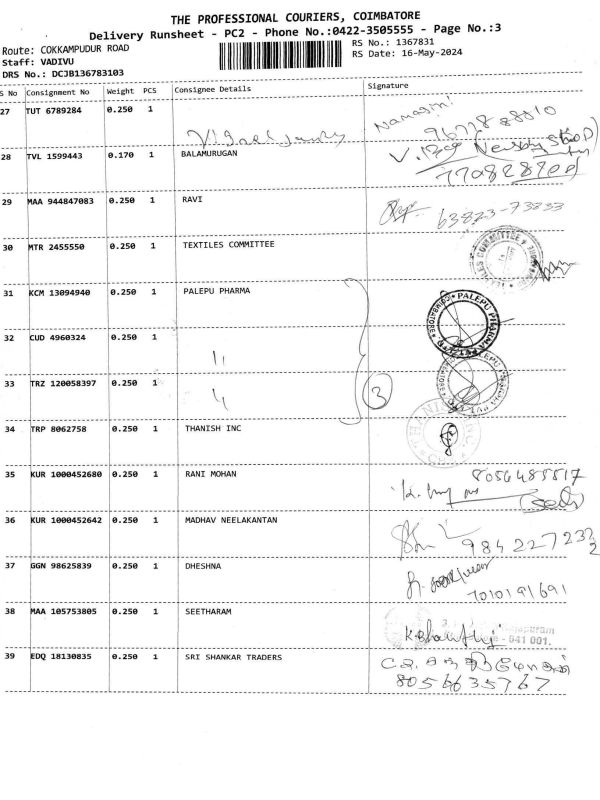 THE PROFESSIONAL COURIERS, COIMBATORE
Delivery Runsheet - PC2 - Phone No.:0422-3505555 - Page No.:3
Route: COKKAMPUDUR ROAD RS No.: 1367831
Staff: VADIVU RS Date: 16-May-2024
DRS No.: DCJB136783103
S No Consignment No Weight PCS Consignee Details Signature
27 TUT 6789284 0.250 1
28 TVL 1599443 0.170 1 BALAMURUGAN
29 MAA 944847083 0.250 1 RAVI 63823-73833
30 MTR 2455550 0.250 1 TEXTILES COMMITTEE
31 KCM 13094940 0.250 1 PALEPU PHARMA
PALEPU PHARMA
COIMBATORE
32 CUD 4960324 0.250 1 11
33 TRZ 120058397 0.250 1 3
34 TRP 8062758 0.250 1 THANISH INC
35 KUR 1000452680 0.250 1 RANI MOHAN 8056485517
36 KUR 1000452642 0.250 1 MADHAV NEELAKANTAN 9842272322
37 GGN 98625839 0.250 1 DHESHNA
7010191691
38 MAA 105753805 0.250 1 SEETHARAM
- 641 001.
39 EDQ 18130835 0.250 1 SRI SHANKAR TRADERS
8056635767